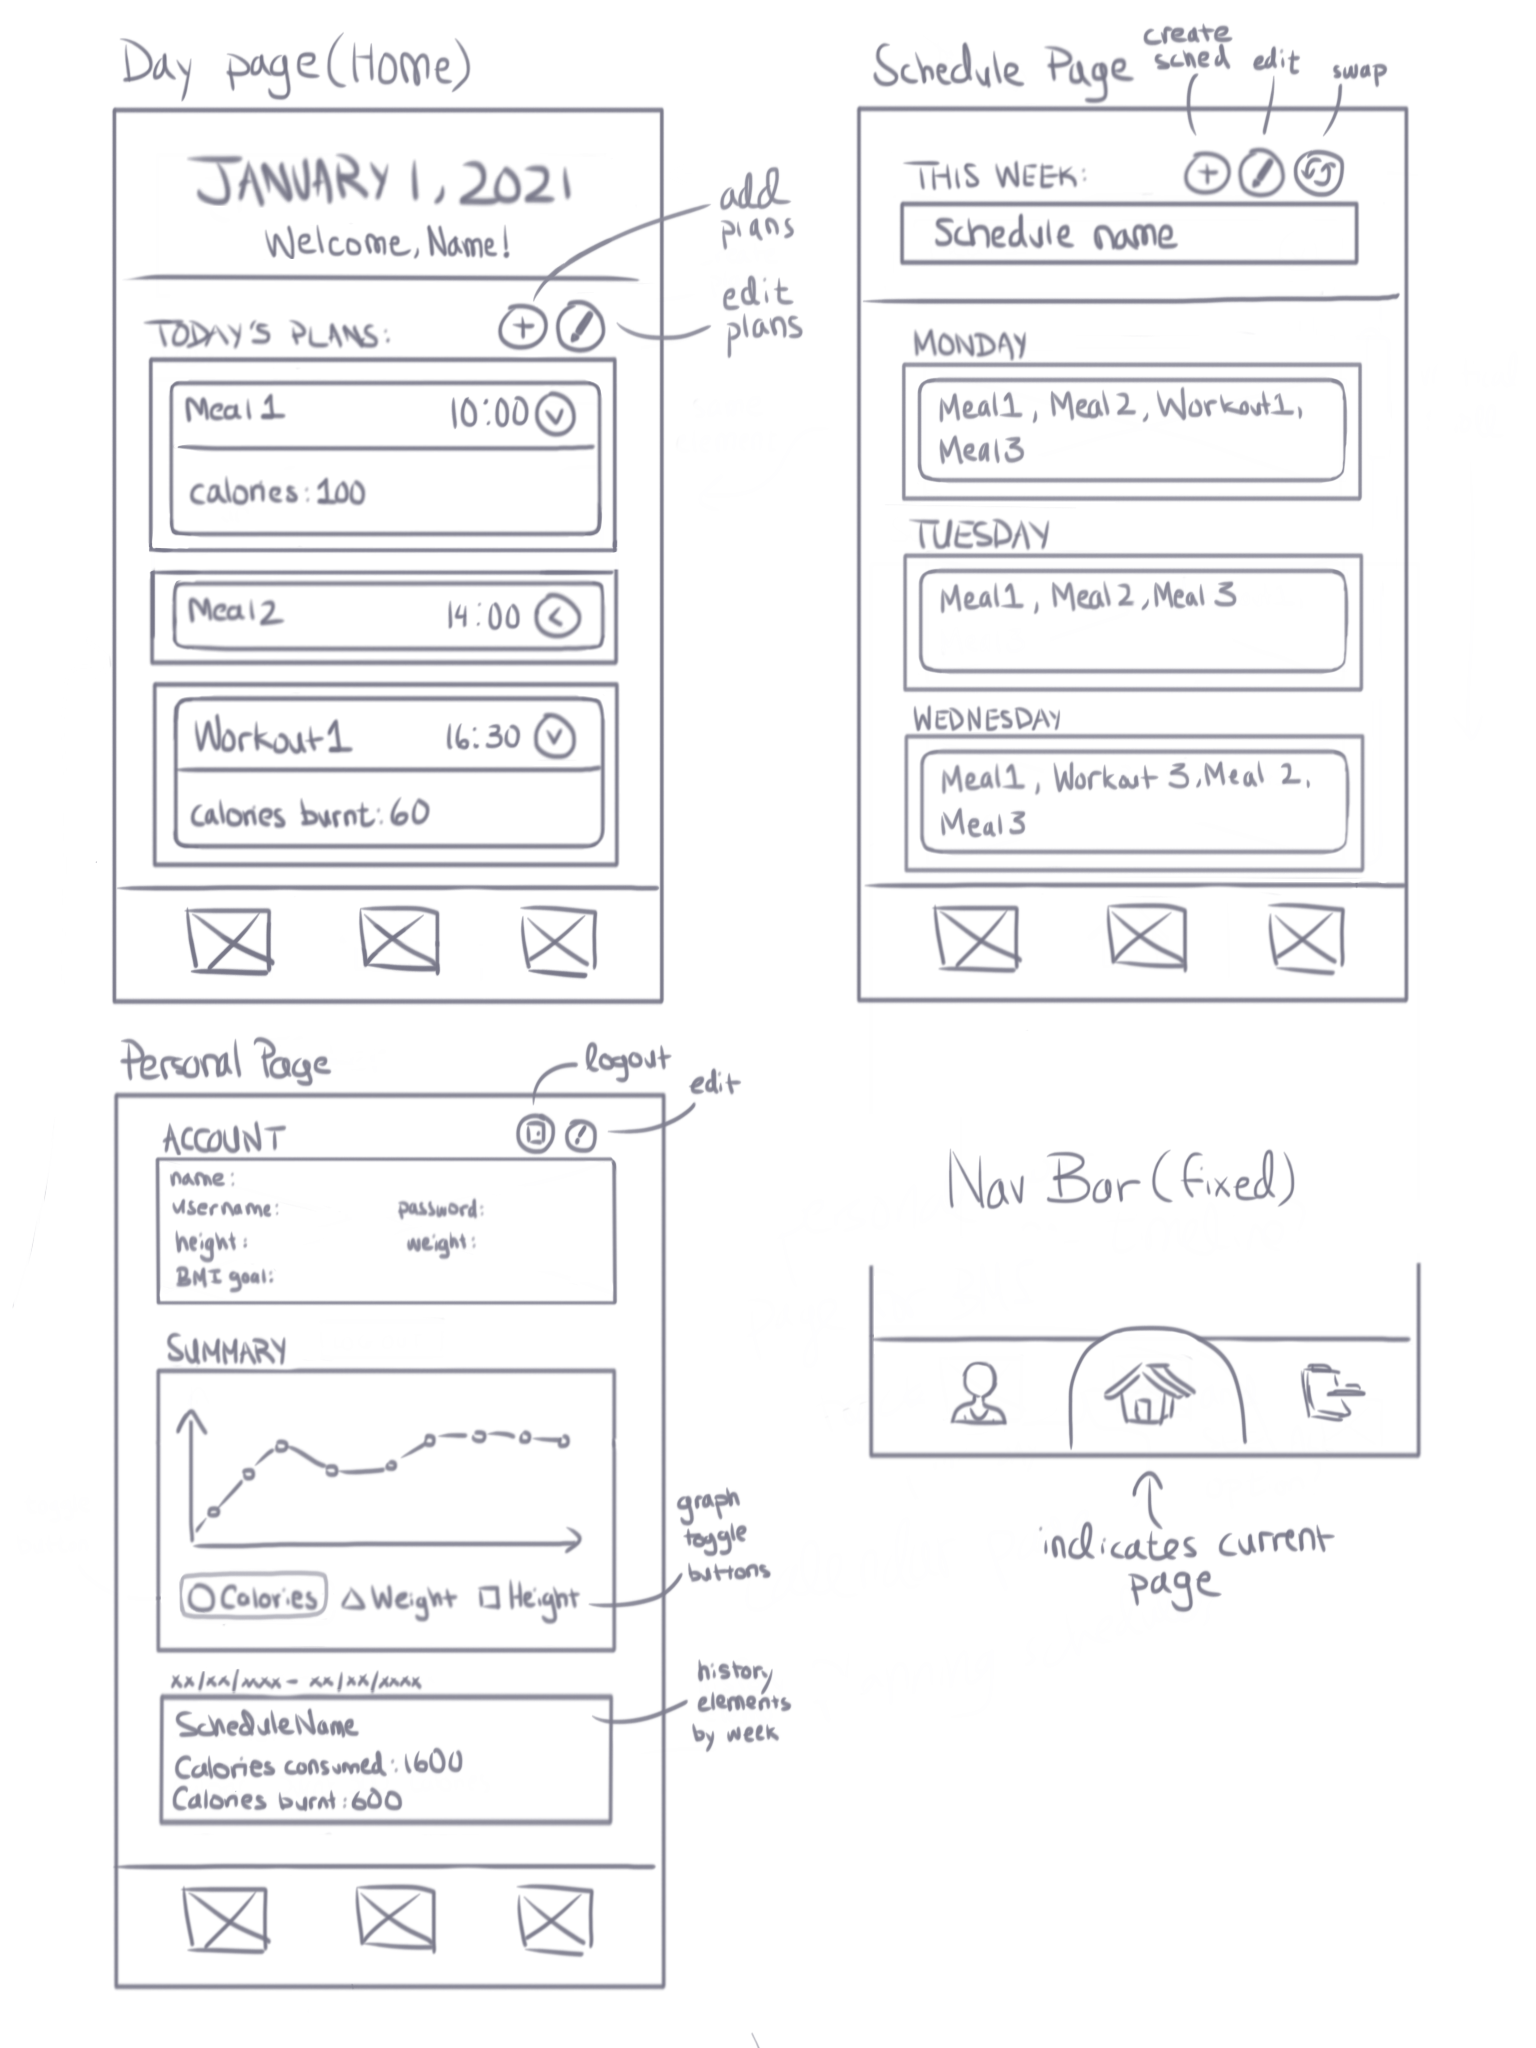 Day page (Home)
JANUARY 1, 2021
Welcome, Name!
add
plans
edit
plans
TODAY'S PLANS:
Meal 1 10:00
calories: 100
Meal 2 14:00
Workout 1 16:30
calories burnt: 60
Schedule Page
create
sched
edit
swap
THIS WEEK:
Schedule name
MONDAY
Meal 1, Meal 2, Workout 1,
Meal 3
TUESDAY
Meal 1, Meal 2, Meal 3
WEDNESDAY
Meal 1, Workout 3, Meal 2,
Meal 3
Personal Page
logout
edit
ACCOUNT
name:
username: password:
height: weight:
BMI goal:
SUMMARY
Calories Weight Height
graph
toggle
buttons
xx/xx/xxxx - xx/xx/xxxx
Schedule Name
Calories consumed: 1600
Calories burnt: 600
history
elements
by week
Nav Bar (fixed)
indicates current
page